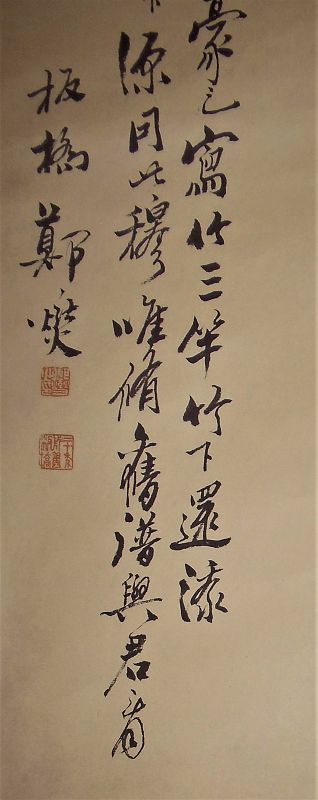 豪已寫竹三竿竹下還添
源同此穆唯脩舊譜與君看
板橋鄭燮